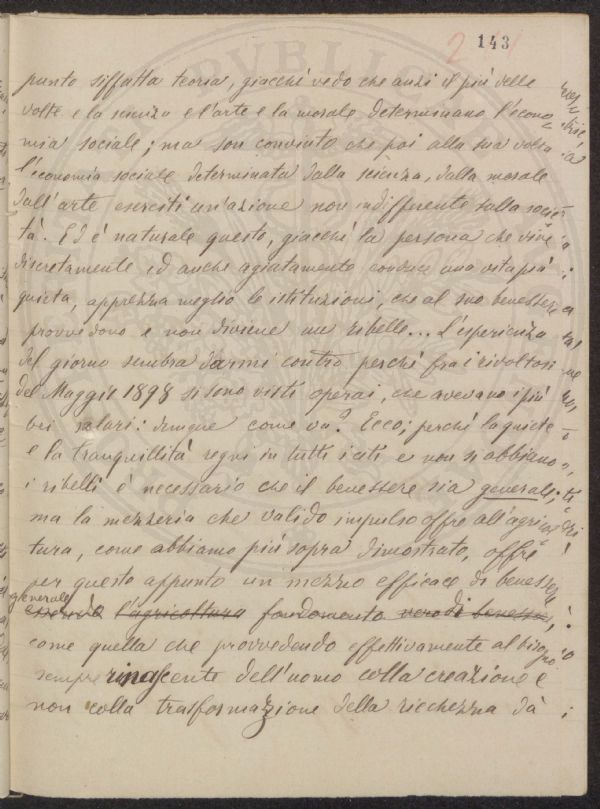 143
punto siffatta teoria, giacchè vedo che anzi il più delle
volte e la scienza e l'arte e la morale determinano l'econo=
mia sociale; ma son convinto che poi alla sua volta
l'economia sociale determinata dalla scienza, dalla morale
dall'arte eserciti un'azione non indifferente sulla socie=
tà. Ed è naturale questo, giacchè la persona che vive
discretamente ed anche agiatamente conduce una vita più
quieta, apprezza meglio le istituzioni, che al suo benessere
provvedono e non diviene un ribelle... L'esperienza
del giorno sembra darmi contro perchè fra i rivoltosi
del Maggio 1898 si sono visti operai, che avevano i più
bei salari: dunque come va? Ecco; perchè la quiete
e la tranquillità regni in tutti i ceti e non si abbiano
i ribelli è necessario che il benessere sia generale;
ma la mezzeria che valido impulso offre all'agricol=
tura, come abbiamo più sopra dimostrato, offre
per questo appunto un mezzo efficace di benessere
generale
essendo l'agricoltura fondamento vero di benessere,
come quella che provvedendo effettivamente al bisogno
sempre rinascente dell'uomo colla creazione e
non colla trasformazione della ricchezza dà